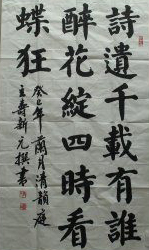 詩遺千載有誰
醉花綻四時看
蝶狂
癸巳年蘭月清韻庭
主壽新元撰書